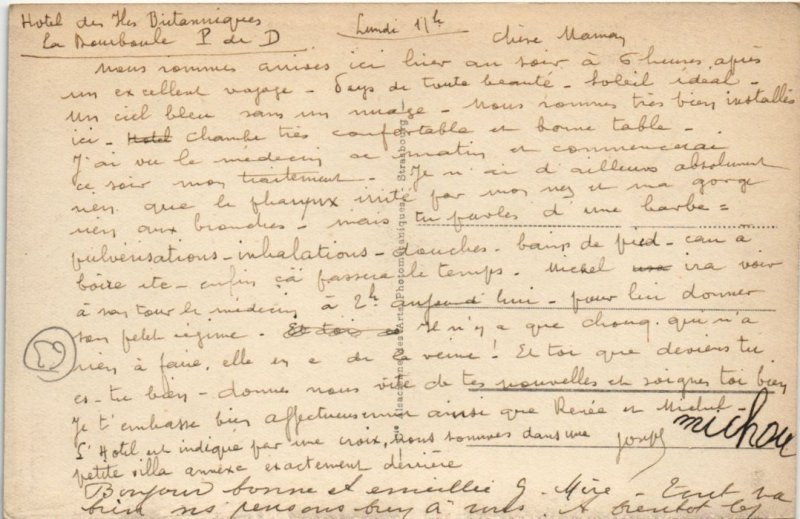 Hotel des Iles Britanniques
La Bourboule P de D
Lundi 11h
Chère Maman
Nous sommes arrivés ici hier au soir à 6 heures après
un excellent voyage - Pays de toute beauté - Soleil idéal -
Un ciel bleu sans un nuage - Nous sommes très bien installés
ici - Hotel Chambre très confortable et bonne table -
J'ai vu le médecin ce matin et commencerai
ce soir mon traitement - Je n'ai d'ailleurs absolument
rien que le pharynx irrité par mon nez et ma gorge
rien aux bronches - mais tu parles d'une barbe =
pulvérisations - inhalations - douches - bains de pied - eau à
boire etc - enfin çà passera le temps - Michel ira voir
à son tour le médecin à 2h aujourd'hui - pour lui donner
son petit régime - Et toi Il n'y a que chouq. qui n'a
rien à faire, elle en a de la veine ! Et toi que deviens tu
es-tu bien - donnes nous vite de tes nouvelles et soignes toi bien
Je t'embrasse bien affectueusement ainsi que Renée et Michel -
L'Hotel est indiqué par une croix, nous sommes dans une Joseph michou
petite villa annexe exactement derrière
Bonjour bonne et G. Mère - Tout va
bien ns pensons bien à vous. A bientot
Alsacienne des Arts Photomécaniques - Strasbourg